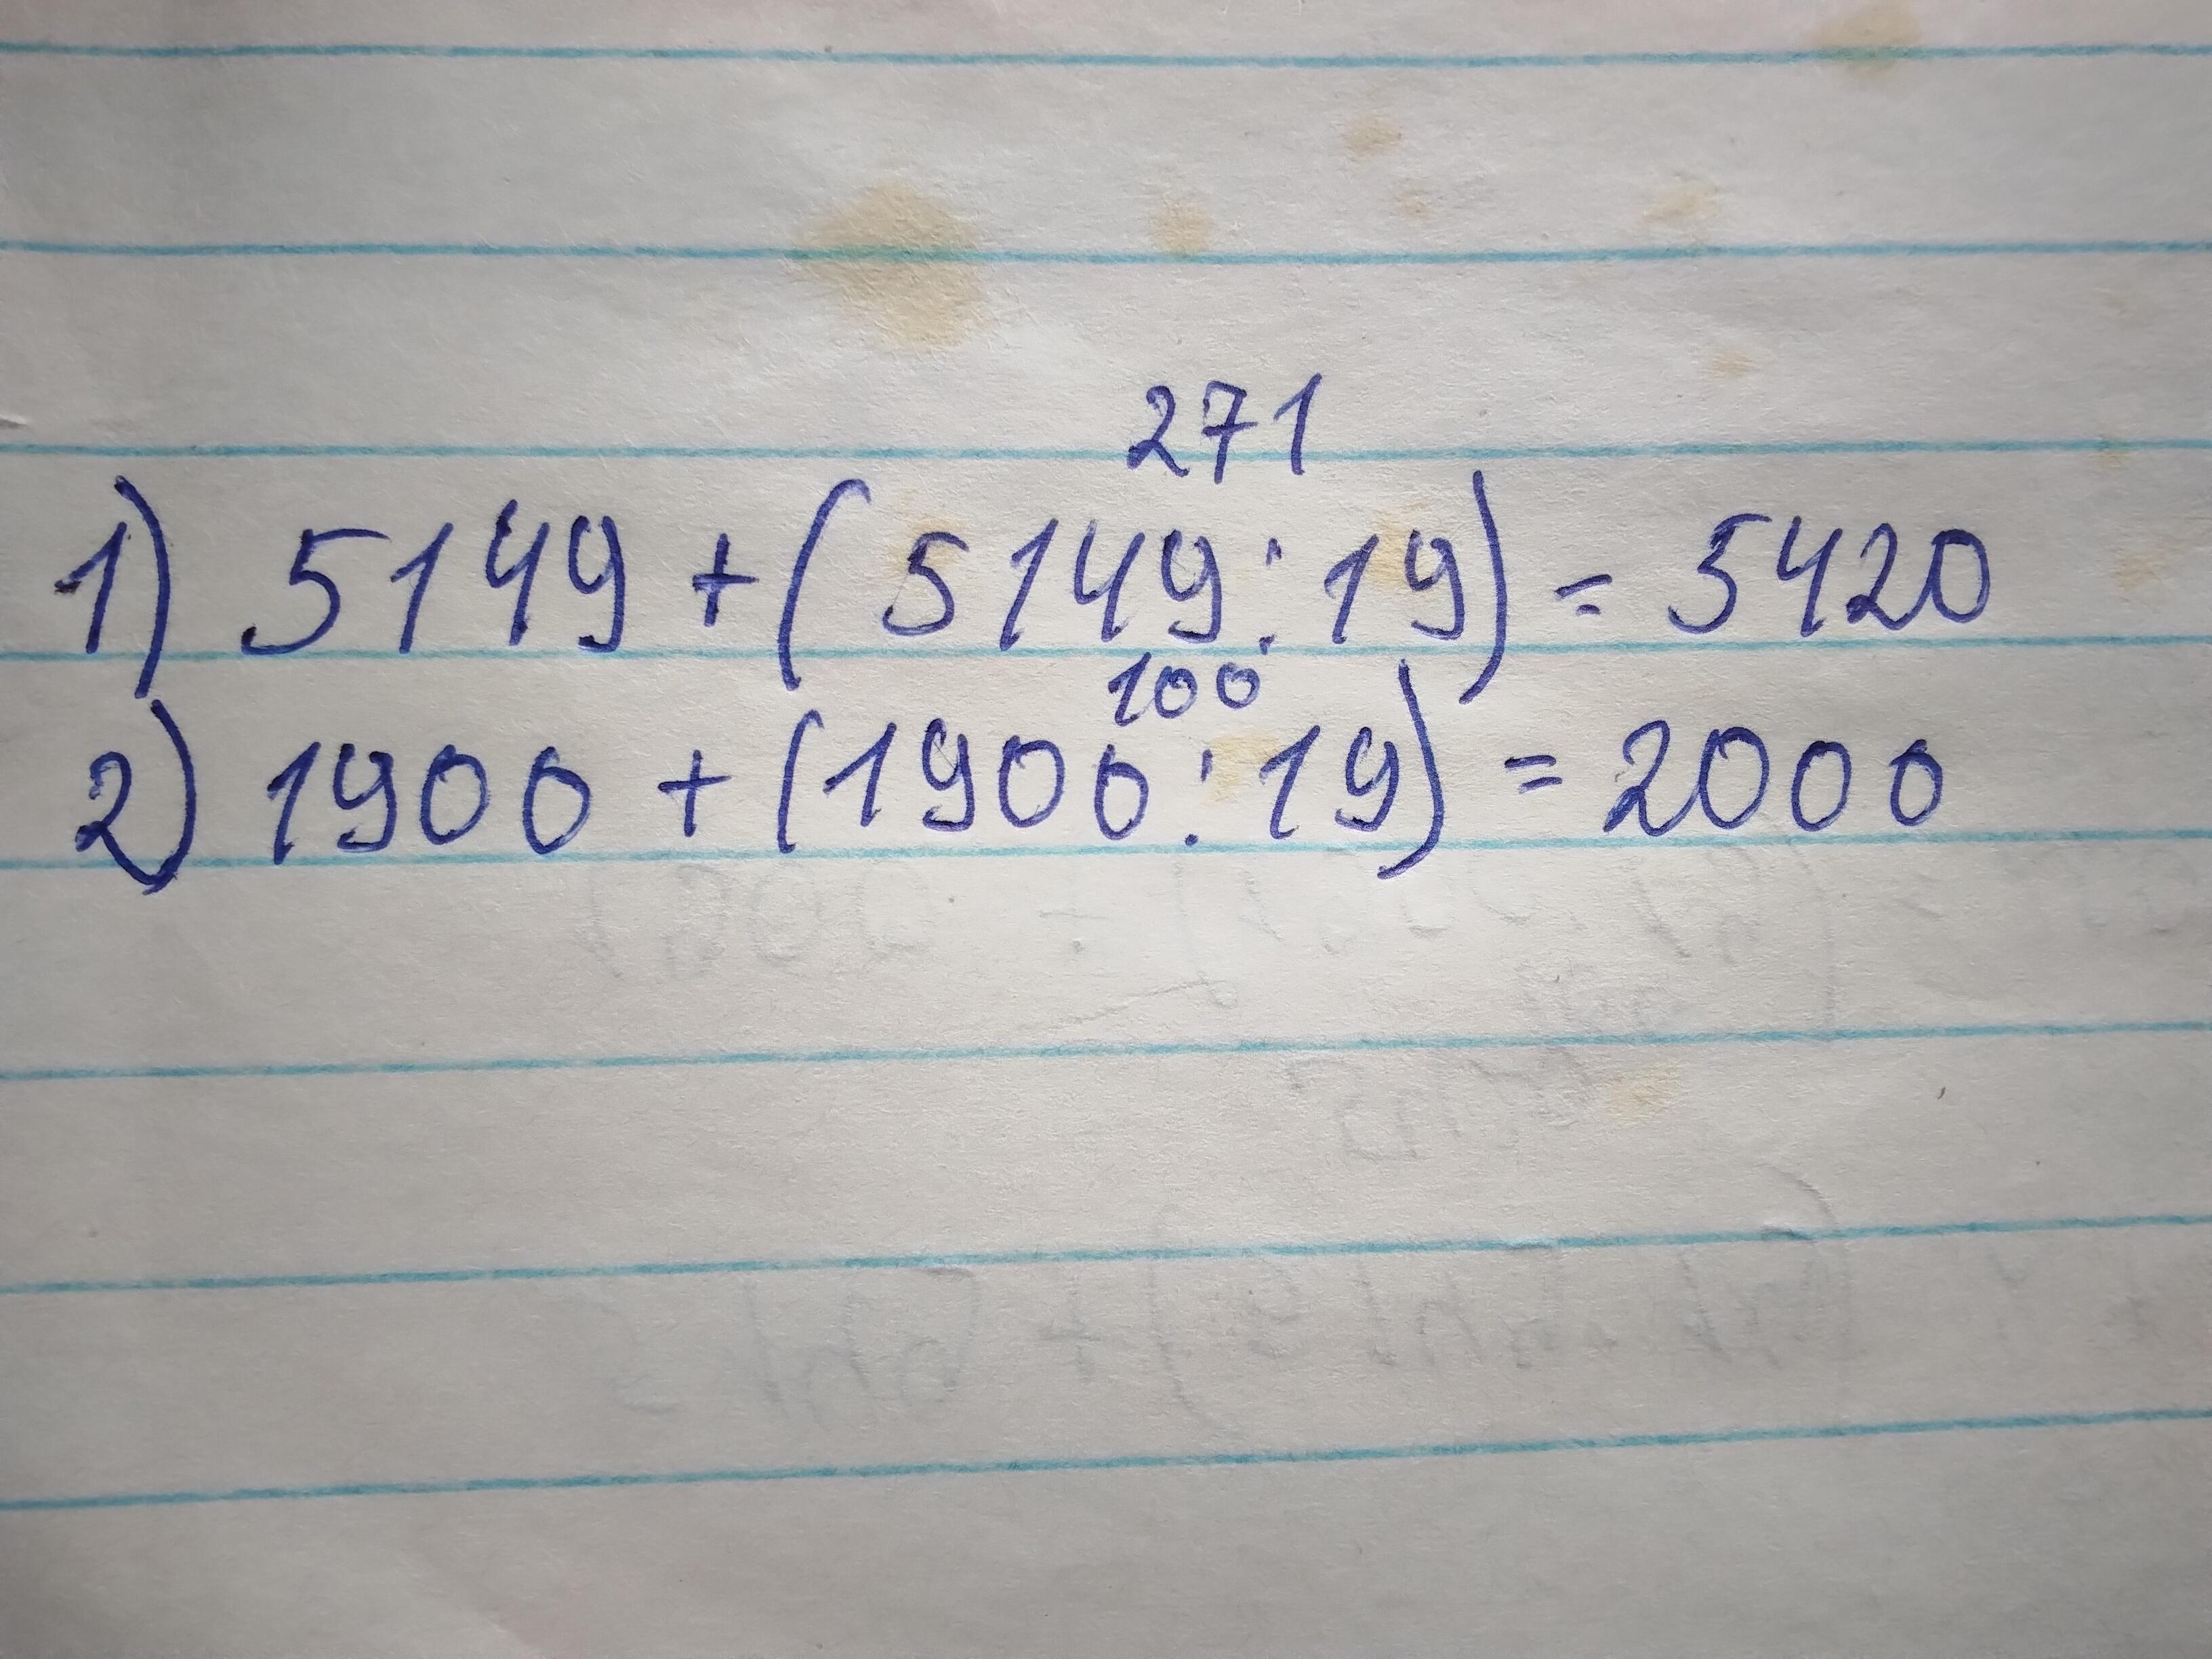 271
1) 5149 + (5149:19) = 5420
100
2) 1900 + (1900:19) = 2000